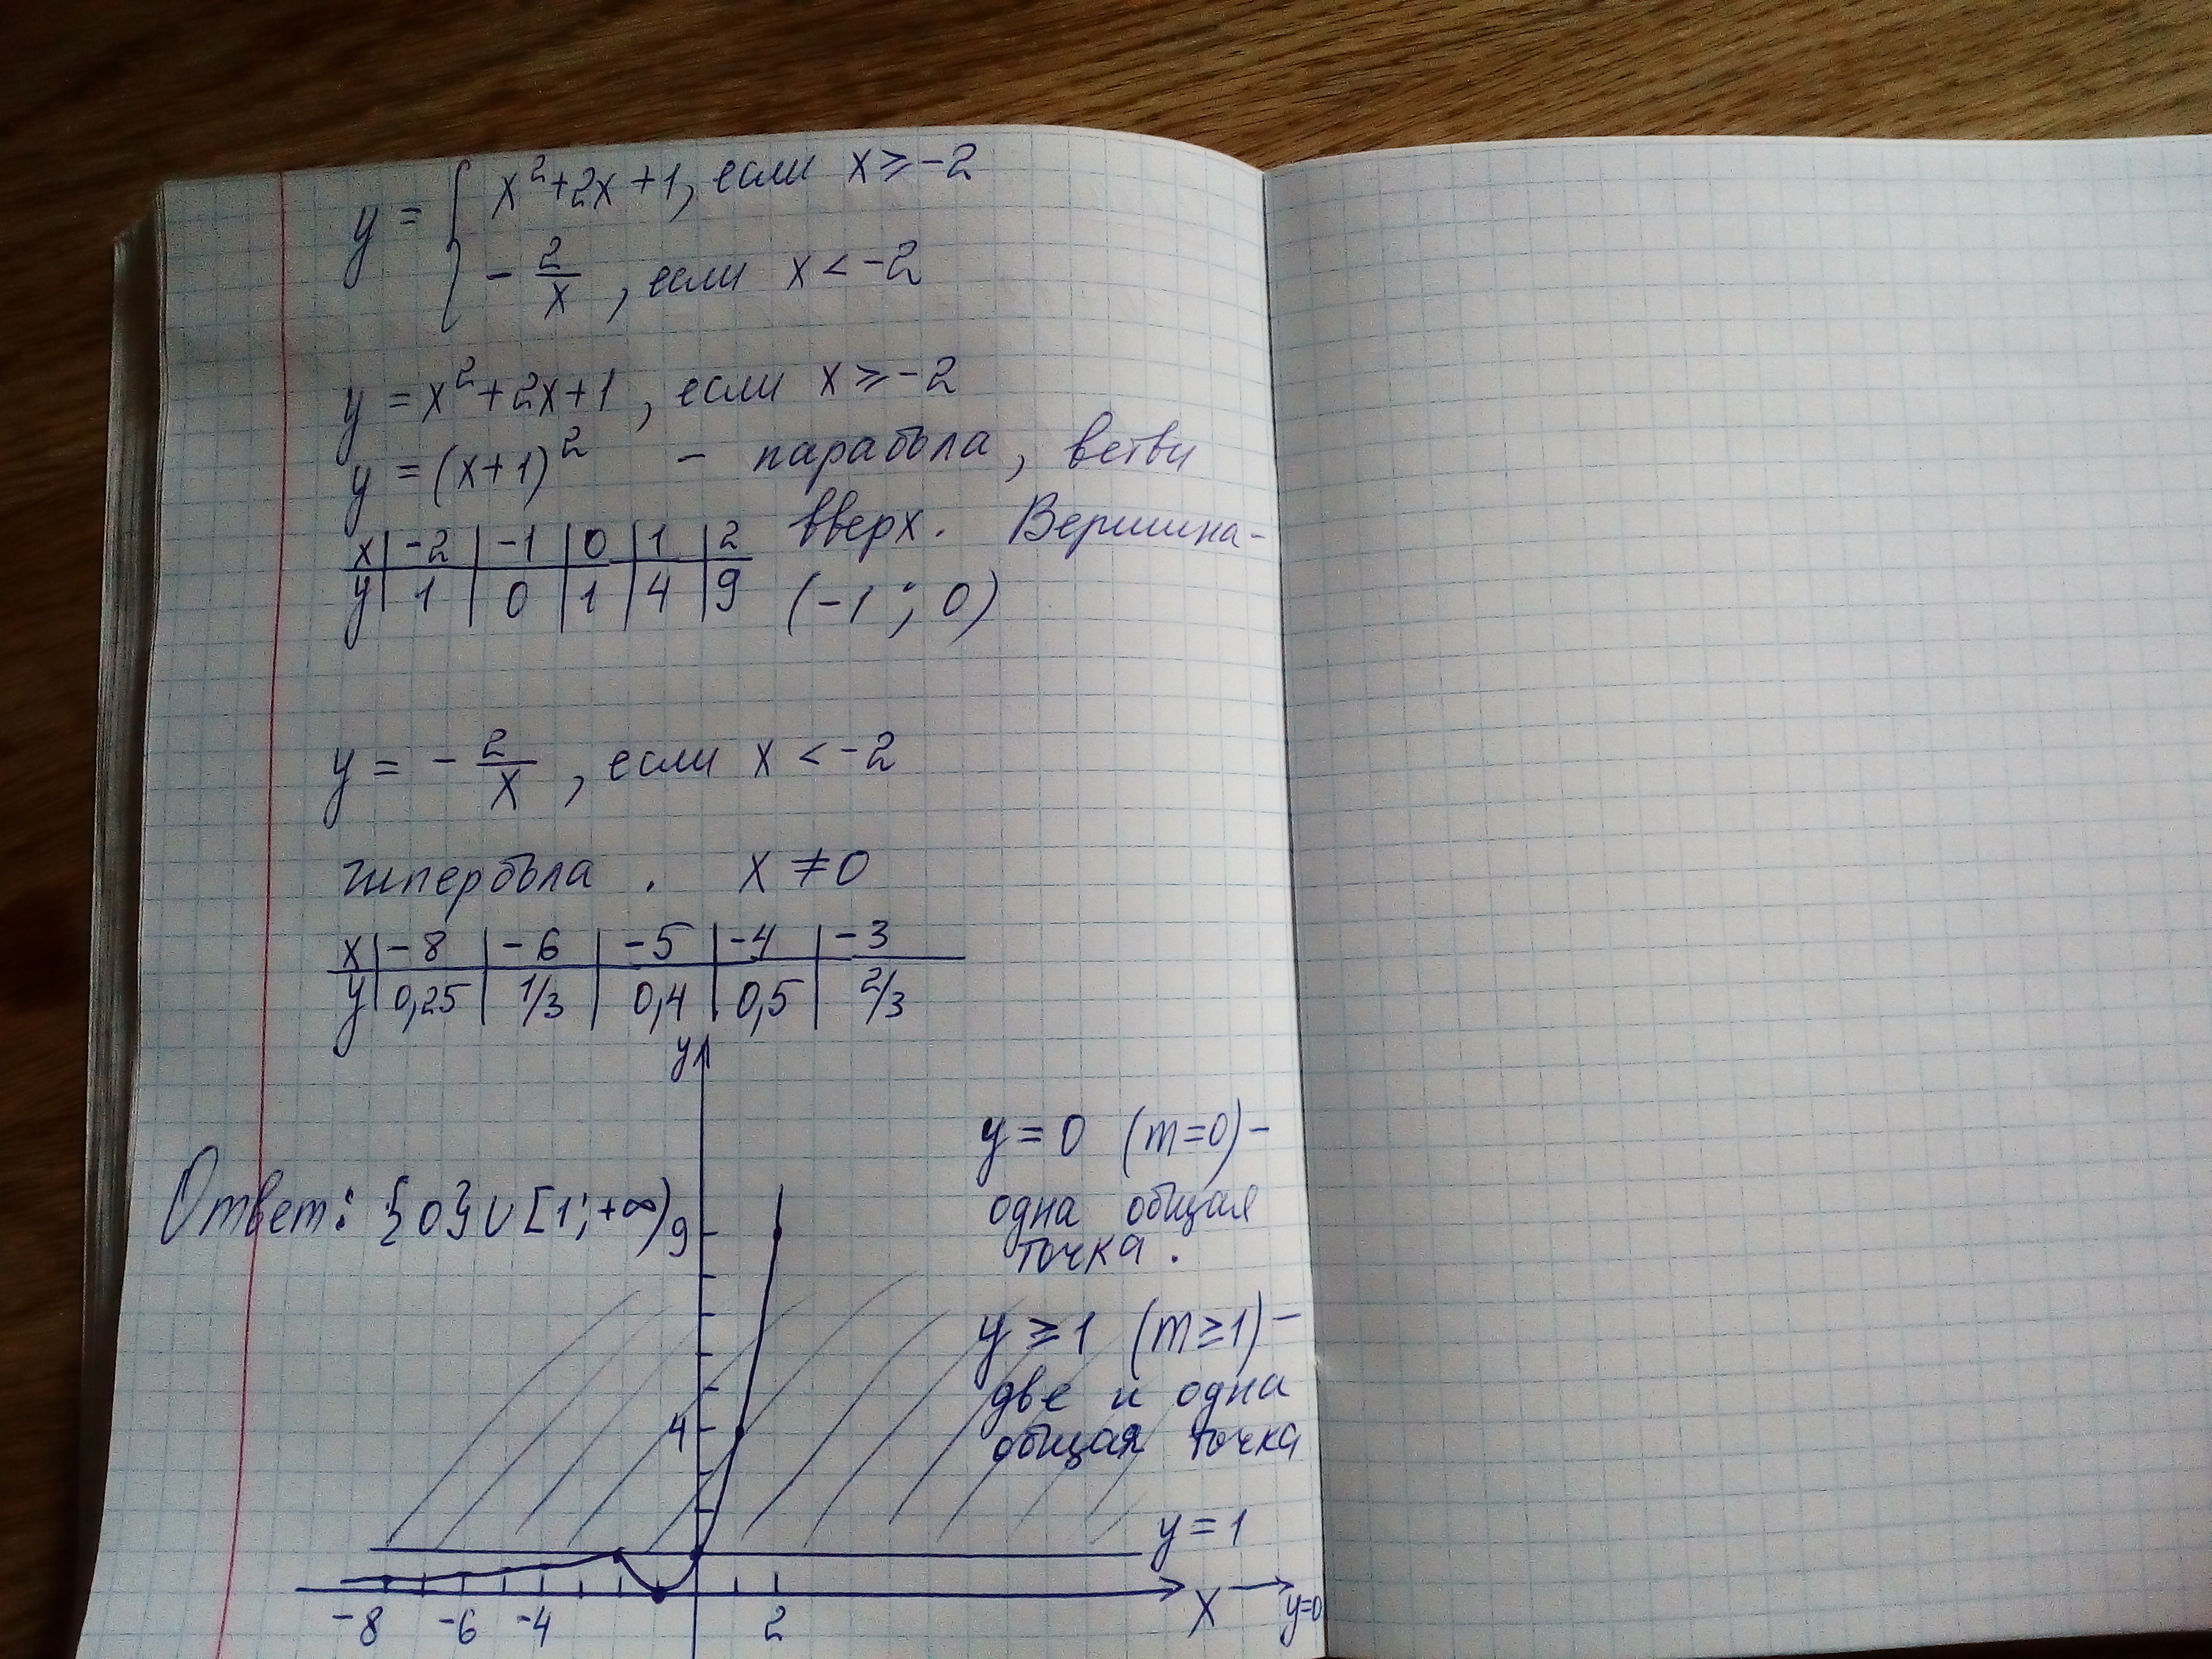 y = { x² + 2x + 1, если x ≥ -2
- 2/x , если x < -2
y = x² + 2x + 1 , если x ≥ -2
y = (x+1)² - парабола, ветви
x | -2 | -1 | 0 | 1 | 2 вверх. Вершина -
y | 1 | 0 | 1 | 4 | 9 (-1 ; 0)
y = - 2/x , если x < -2
гипербола . x ≠ 0
x | -8 | -6 | -5 | -4 | -3
y | 0,25 | 1/3 | 0,4 | 0,5 | 2/3
y
y = 0 (m=0) -
одна общая
точка .
Ответ: {0} ∪ [1; +∞)
9
y ≥ 1 (m ≥ 1) -
две и одна
общая точка
4
y = 1
-8 -6 -4 2 x y=0